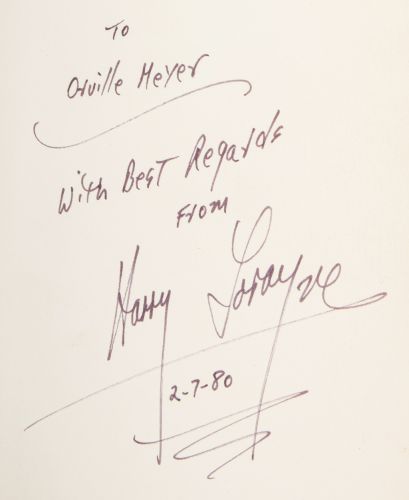 To
Orville Meyer
With Best Regards
From
Harry Lorayne
2-7-80